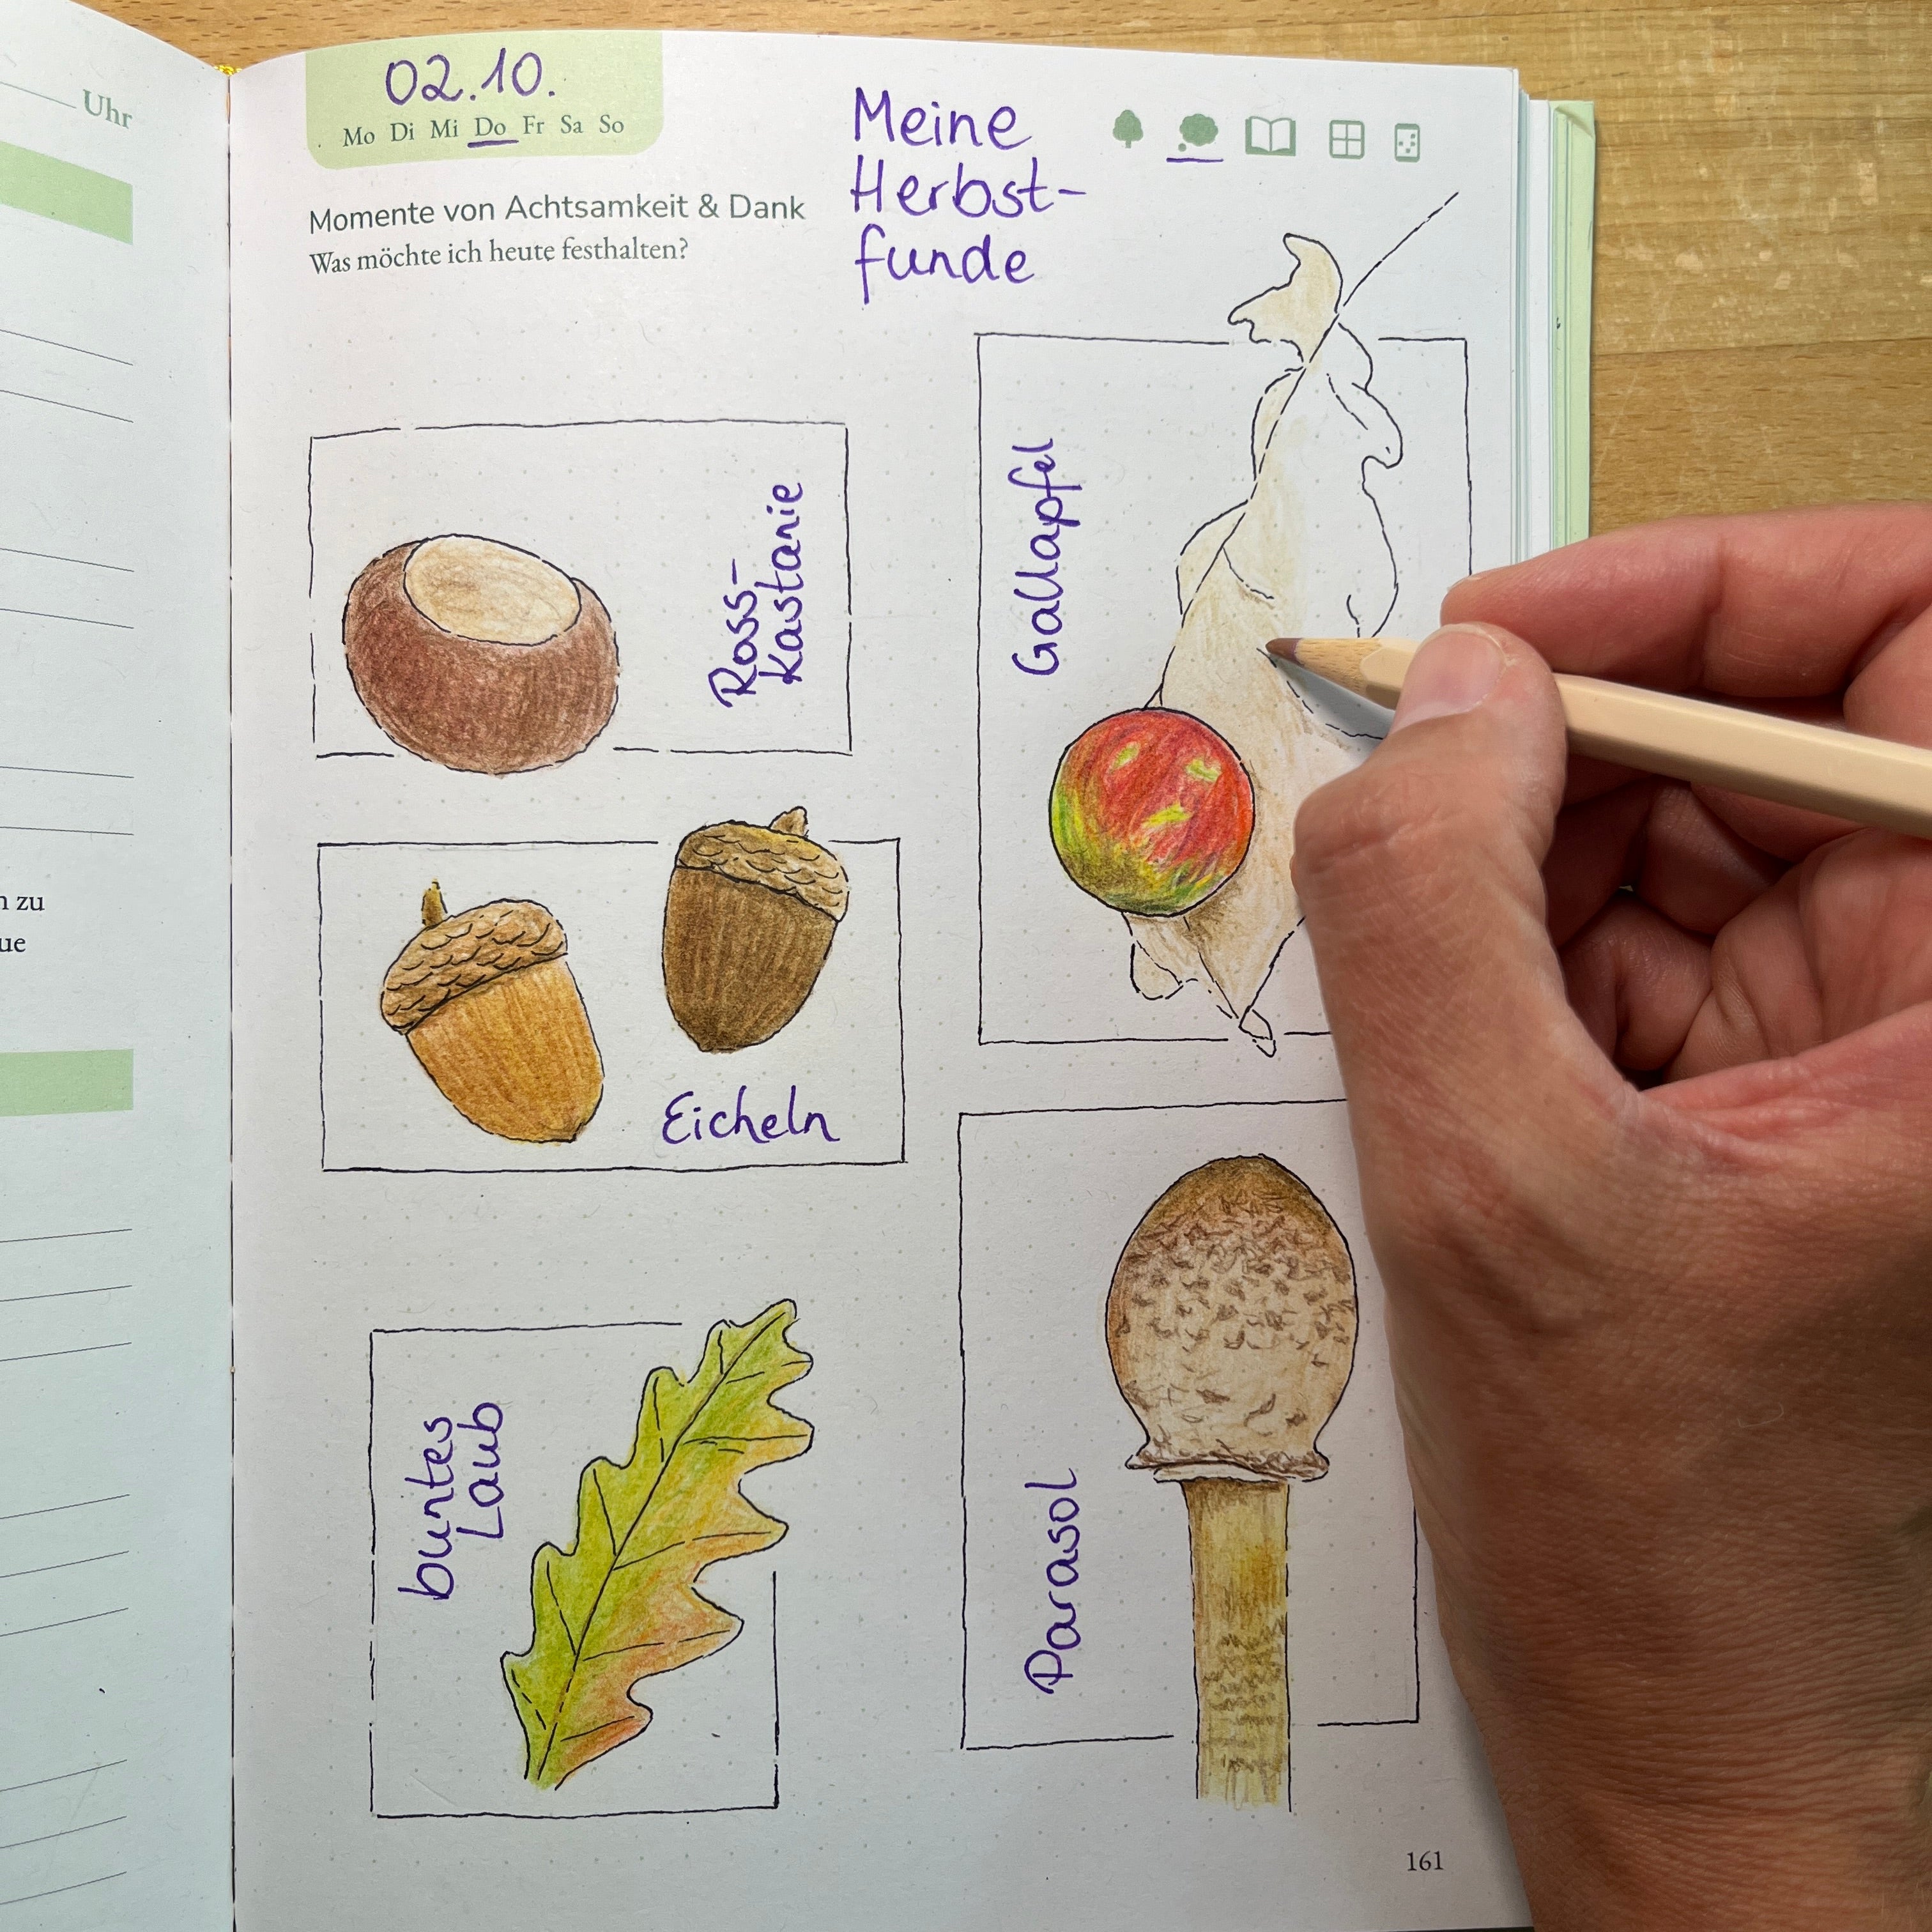 Uhr
n zu
ue
02.10.
Mo Di Mi Do Fr Sa So
Momente von Achtsamkeit & Dank
Was möchte ich heute festhalten?
Meine
Herbst-
funde
Ross-
kastanie
Gallapfel
Eicheln
buntes
Laub
Parasol
161